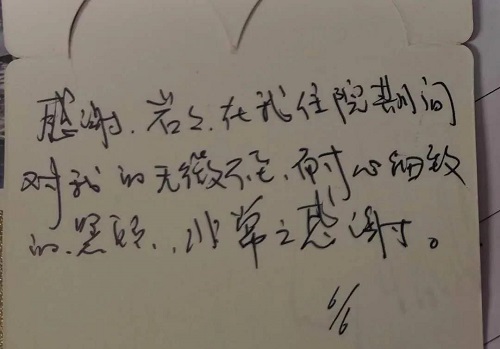 感谢.岩.在我住院期间
对我的无微不至、耐心细致
的照顾..非常之感谢。
6/6